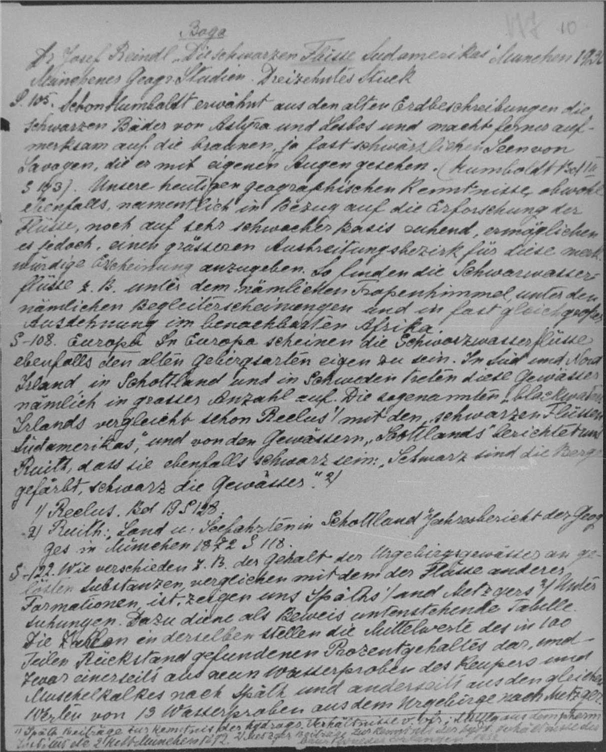 Boga
Dr. Josef Reindl „Die schwarzen Flüsse Südamerikas" München 19
Münchener Geogr. Studien. Dreizehntes Stück
S. 105. Schon Humboldt erwähnt aus den alten Erdbeschreibungen die
schwarzen Bäder von Astyra und Lesbos und macht ferner auf-
merksam auf die braunen, ja fast schwärzlichen Seen von
Savoyen, die er mit eigenen Augen gesehen. (Humboldt Bd
S 193). Unsere heutigen geographischen Kenntnisse, obwohl
ebenfalls, namentlich in Bezug auf die Erforschung der
Flüsse, noch auf sehr schwacher Basis ruhend, ermöglichen
es jedoch, einen grösseren Ausbreitungsbezirk für diese merk-
würdige Erscheinung anzugeben. So finden die Schwarzwasser-
flüsse z. B. unter dem nämlichen Tropenhimmel, unter den
nämlichen Begleiterscheinungen und in fast gleich grosser
Ausdehnung im benachbarten Afrika.
S-108. Europa In Europa scheinen die Schwarzwasserflüsse
ebenfalls den alten Gebirgsarten eigen zu sein. In Süd und Nord
Irland in Schottland und in Schweden treten diese Gewässer
nämlich in grosser Anzahl auf. Die sogenannten „blackwaters"
Irlands vergleicht schon Reclus 1) mit den „schwarzen Flüssen
Südamerikas", und von den Gewässern „Schottlands" berichtet uns
Ruith, dass sie ebenfalls schwarz sein: „Schwarz sind die Berge
gefärbt, schwarz die Gewässer." 2)
1) Reclus. Bd 19 S 128.
2) Ruith: Land u. Seefahrten in Schottland Jahresbericht der Geog
Ges in München 1872 S 118.
S-122. Wie verschieden z. B. der Gehalt der Urgebirgsgewässer an ge-
lösten Substanzen, verglichen mit dem der Flüsse anderer
Formationen, ist, zeigen uns Späths 1) und Metzgers 2) Unter
suchungen. Dazu diene als Beweis untenstehende Tabelle.
Die Zahlen in derselben stellen die Mittelwerte des in 100
Teilen Rückstand gefundenen Prozentgehaltes dar, und
zwar einerseits aus neun Wasserproben des Keupers und
Muschelkalkes nach Späth und anderseits aus den gleichen
Werten von 13 Wasserproben aus dem Urgebirge nach Metzger.
1) Späth Beiträge zur Kenntnis der hydrogr. Verhältnisse v.
München 2) Metzger Beiträge zur Kenntnis der hydr.